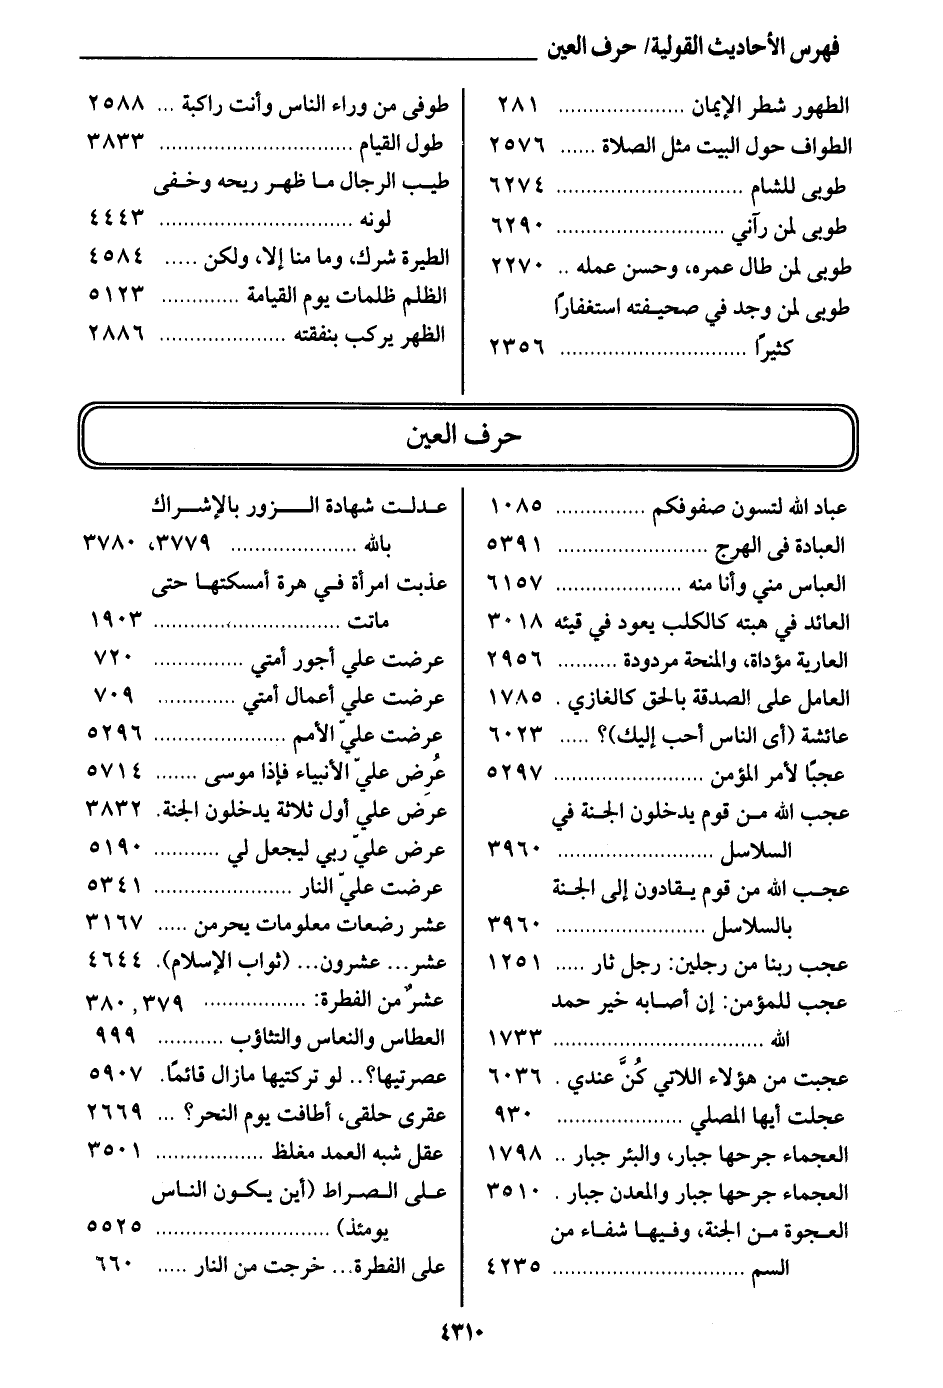 فهرس الأحاديث القولية/ حرف العين
الطهور شطر الإيمان ..................... ٢٨١
الطواف حول البيت مثل الصلاة ...... ٢٥٧٦
طوبى للشام ............................... ٦٢٧٤
طوبى لمن رآني ............................ ٦٢٩٠
طوبى لمن طال عمره، وحسن عمله .. ٢٢٧٠
طوبى لمن وجد في صحيفته استغفارًا
كثيرًا ............................... ٢٣٥٦
طوفى من وراء الناس وأنت راكبة ... ٢٥٨٨
طول القيام ................................ ٣٨٣٣
طيب الرجال ما ظهر ريحه وخفى
لونه ................................ ٤٤٤٣
الطيرة شرك، وما منا إلا، ولكن ..... ٤٥٨٤
الظلم ظلمات يوم القيامة ............. ٥١٢٣
الظهر يركب بنفقته ..................... ٢٨٨٦
حرف العين
عباد الله لتسون صفوفكم ............... ١٠٨٥
العبادة فى الهرج ......................... ٥٣٩١
العباس مني وأنا منه ..................... ٦١٥٧
العائد في هبته كالكلب يعود في قيئه ٣٠١٨
العارية مؤداة، والمنحة مردودة .......... ٢٩٥٦
العامل على الصدقة بالحق كالغازي . ١٧٨٥
عائشة (أى الناس أحب إليك)؟ ..... ٦٠٢٣
عجبًا لأمر المؤمن ......................... ٥٢٩٧
عجب الله من قوم يدخلون الجنة في
السلاسل .......................... ٣٩٦٠
عجب الله من قوم يقادون إلى الجنة
بالسلاسل ......................... ٣٩٦٠
عجب ربنا من رجلين: رجل ثار ..... ١٢٥١
عجب للمؤمن: إن أصابه خير حمد
الله ................................... ١٧٣٣
عجبت من هؤلاء اللاتي كُنَّ عندي . ٦٠٣٦
عجلت أيها المصلي ..................... ٩٣٠
العجماء جرحها جبار، والبئر جبار .. ١٧٩٨
العجماء جرحها جبار والمعدن جبار . ٣٥١٠
العجوة من الجنة، وفيها شفاء من
السم ................................ ٤٢٣٥
عدلت شهادة الزور بالإشراك
بالله ..................... ٣٧٧٩، ٣٧٨٠
عذبت امرأة في هرة أمسكتها حتى
ماتت ............................... ١٩٠٣
عرضت علي أجور أمتي ............... ٧٢٠
عرضت علي أعمال أمتي ............. ٧٠٩
عرضت عليّ الأمم ...................... ٥٢٩٦
عُرِض عليّ الأنبياء فإذا موسى ....... ٥٧١٤
عرض علي أول ثلاثة يدخلون الجنة. ٣٨٣٢
عرض عليّ ربي ليجعل لي ........... ٥١٩٠
عرضت عليّ النار ....................... ٥٣٤١
عشر رضعات معلومات يحرمن ..... ٣١٦٧
عشر... عشرون... (ثواب الإسلام). ٤٦٤٤
عشرٌ من الفطرة: ................. ٣٧٩, ٣٨٠
العطاس والنعاس والتثاؤب ........... ٩٩٩
عصرتيها؟.. لو تركتيها مازال قائمًا. ٥٩٠٧
عقرى حلقى، أطافت يوم النحر؟ ... ٢٦٦٩
عقل شبه العمد مغلظ .................. ٣٥٠١
على الصراط (أين يكون الناس
يومئذ) ............................. ٥٥٢٥
على الفطرة... خرجت من النار ..... ٦٦٠
٤٣١٠